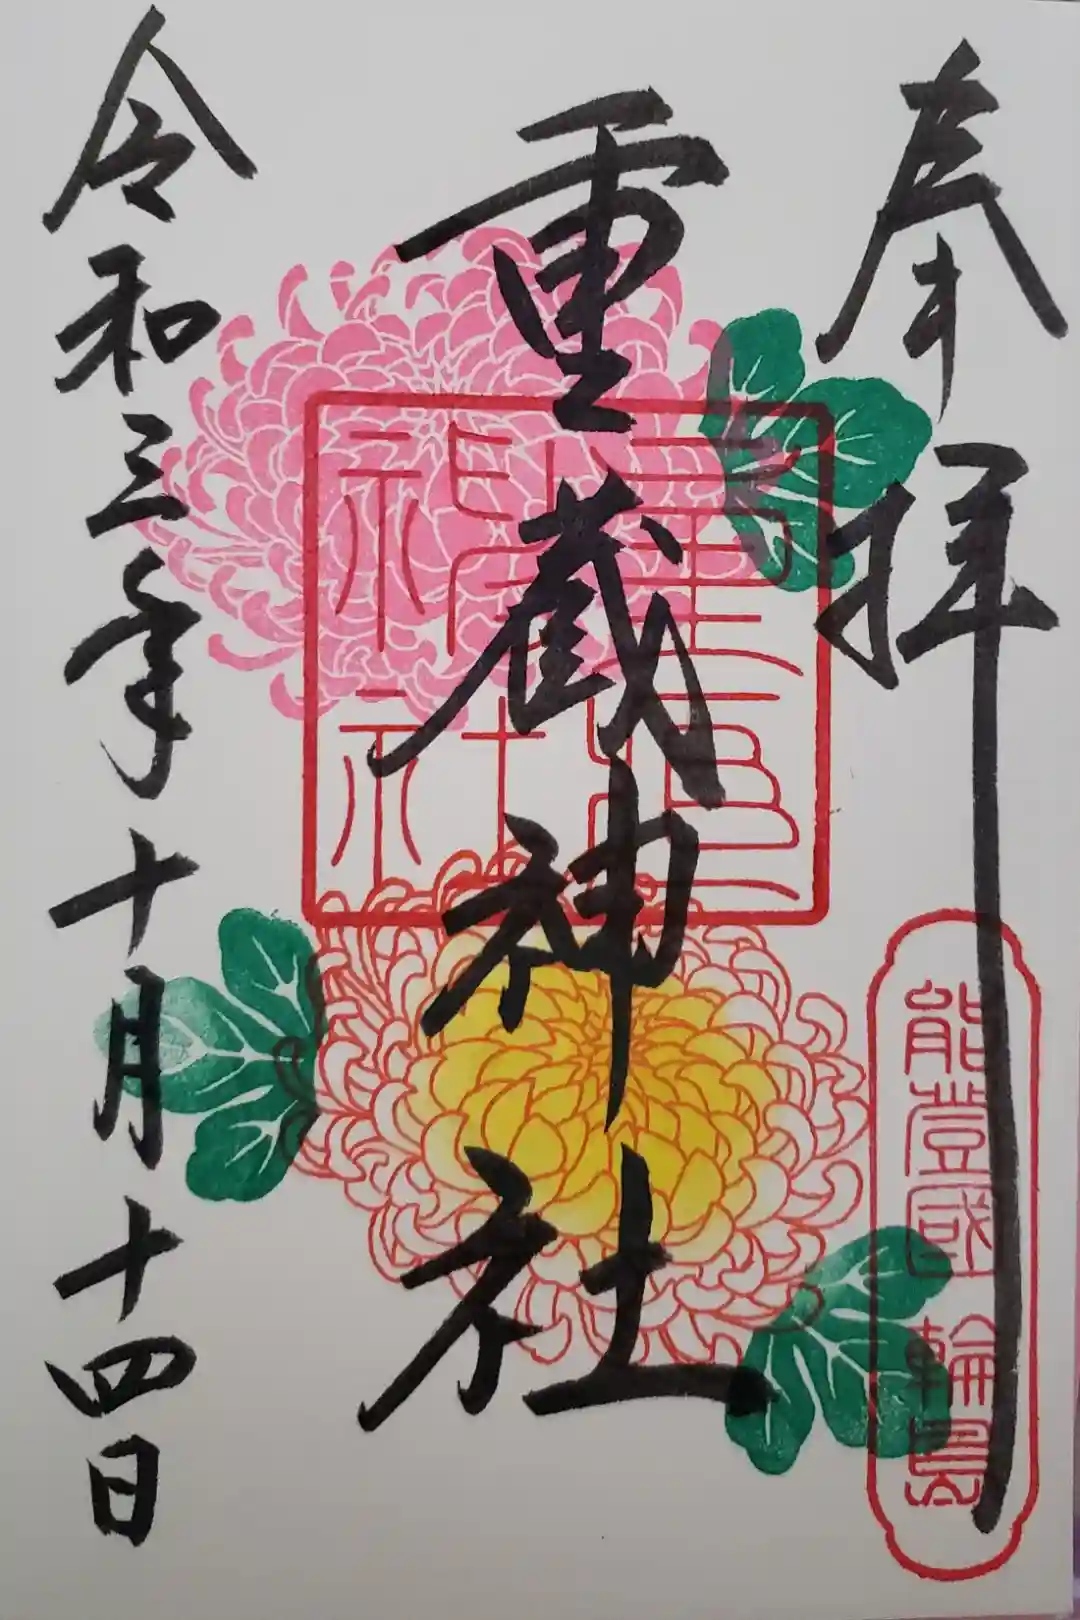 奉拝
能登國輪島
重蔵神社
令和三年十月十四日